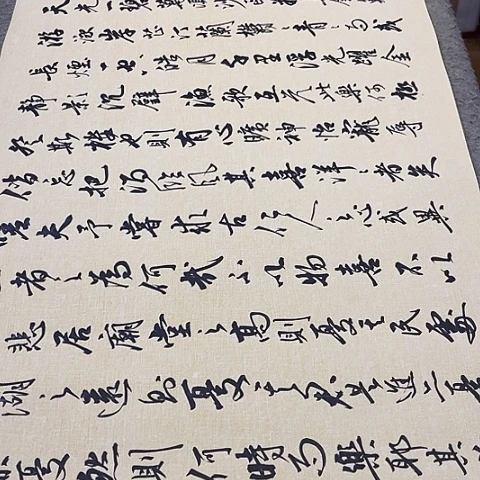 天光一碧萬頃沙鷗
游泳岸芷汀蘭鬱々青々而或
長煙一空皓月千里浮光躍金
靜影沉璧漁歌互答此樂何極
登斯樓也則有心曠神怡寵辱
偕忘把酒臨風其喜洋々者矣
嗟夫予嘗求古仁人之心或異
者之為何哉不以物喜不以
悲居廟堂之高則憂其民處
湖之遠則憂其君是進亦憂
憂然則何時而樂耶其